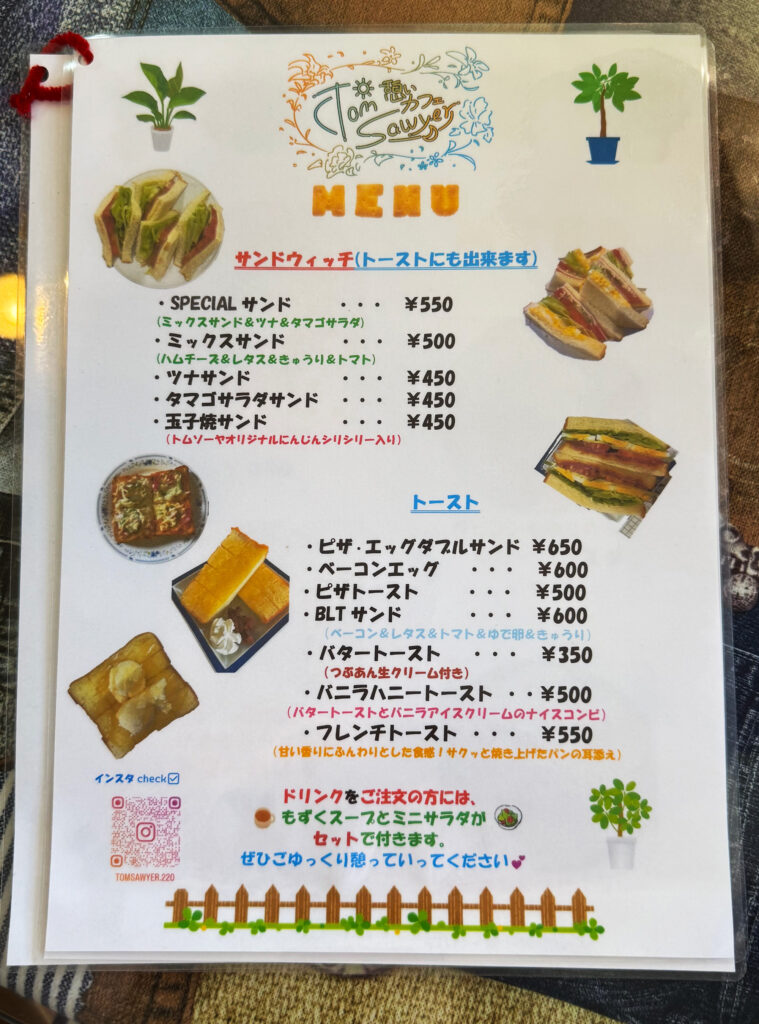 Tom 憩いカフェ
Sawyer
MENU
サンドウィッチ(トーストにも出来ます)
・SPECIAL サンド ・・・ ¥550
(ミックスサンド&ツナ&タマゴサラダ)
・ミックスサンド ・・・ ¥500
(ハムチーズ&レタス&きゅうり&トマト)
・ツナサンド ・・・ ¥450
・タマゴサラダサンド ・・・ ¥450
・玉子焼サンド ・・・ ¥450
(トムソーヤオリジナルにんじんシリシリー入り)
トースト
・ピザ・エッグダブルサンド ¥650
・ベーコンエッグ ・・・ ¥600
・ピザトースト ・・・ ¥500
・BLT サンド ・・・ ¥600
(ベーコン&レタス&トマト&ゆで卵&きゅうり)
・バタートースト ・・・ ¥350
(つぶあん生クリーム付き)
・バニラハニートースト ・・¥500
(バタートーストとバニラアイスクリームのナイスコンビ)
・フレンチトースト ・・・ ¥550
(甘い香りにふんわりとした食感!サクッと焼き上げたパンの耳添え)
インスタ check☑
TOMSAWYER.220
ドリンクをご注文の方には、
もずくスープとミニサラダが
セットで付きます。
ぜひごゆっくり憩っていってください💕